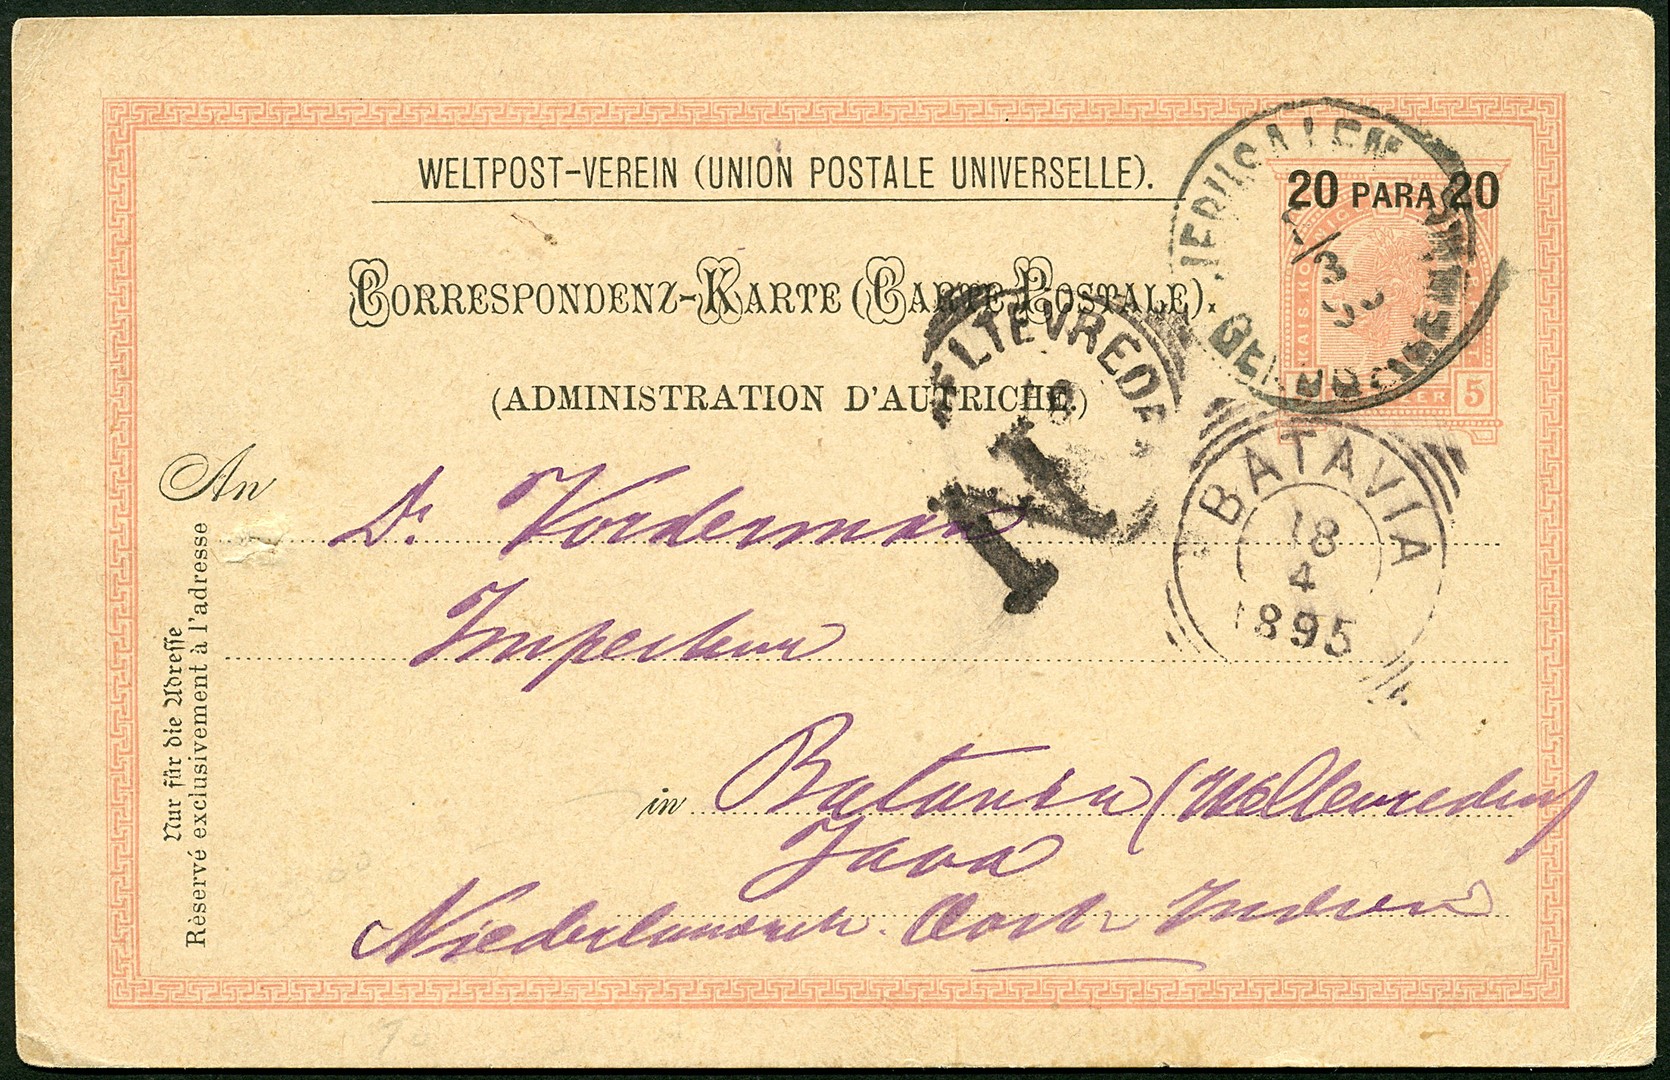 WELTPOST-VEREIN (UNION POSTALE UNIVERSELLE).
20 PARA 20
JERUSALEM
3
KAIS. KÖ
5
CORRESPONDENZ-KARTE (CARTE POSTALE).
ELTEVREDE
(ADMINISTRATION D'AUTRICHE.)
N
BATAVIA
18
4
1895
An
Dr. Vorderman
Inspecteur
in Batavia (Weltevreden)
Java
Niederländisch. Oost-Indien
Nur für die Adresse
Rèservé exclusivement à l'adresse